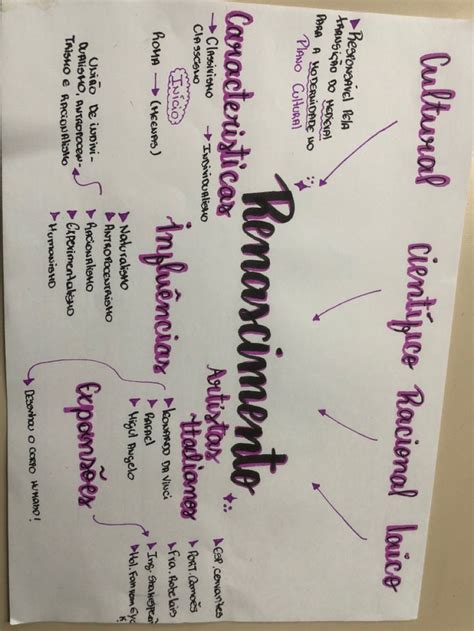 Cultural
científico
Racional
laico
RESPONSÁVEL PELA
TRANSIÇÃO DO MEDIEVAL
PARA A MODERNIDADE NO
PLANO CULTURAL
Renascimento
Características
CLASSIVISMO
CLASSCISMO
INDIVIDUALISMO
INÍCIO
ROMA (MECENAS)
UNIÃO DE INDIVI-
DUALISMO, ANTROPOCEN-
TRISMO E RACIONALISMO
Influências
Naturalismo
ANTROPOCENTRISMO
RACIONALISMO
Experimentalismo
Humanismo
Artistas
Italianos
LEONARDO DA VINCI
RAFAEL
Migul Angelo
Expansões
DESENHOU O CORPO HUMANO!
ESP. Cervantes
PORT. Camões
Fra. Rabelais
Ing. Shakespeare
Hol.